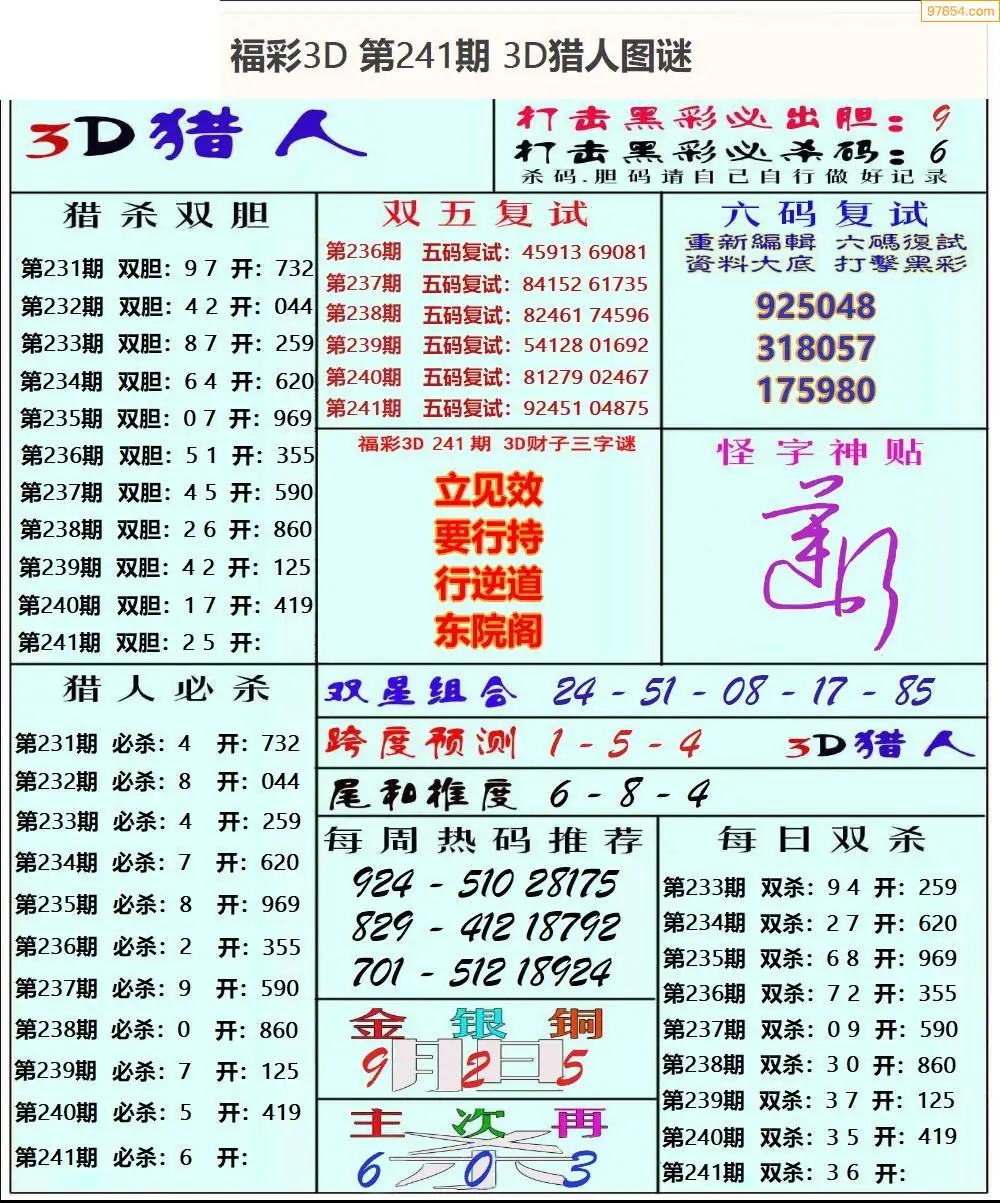 97654.com
福彩3D 第241期 3D猎人图谜
3D猎人
打击黑彩必出胆：9
打击黑彩必杀码：6
杀码.胆码请自己自行做好记录
猎杀双胆
第231期 双胆：9 7 开：732
第232期 双胆：4 2 开：044
第233期 双胆：8 7 开：259
第234期 双胆：6 4 开：620
第235期 双胆：0 7 开：969
第236期 双胆：5 1 开：355
第237期 双胆：4 5 开：590
第238期 双胆：2 6 开：860
第239期 双胆：4 2 开：125
第240期 双胆：1 7 开：419
第241期 双胆：2 5 开：
双五复试
第236期 五码复试：45913 69081
第237期 五码复试：84152 61735
第238期 五码复试：82461 74596
第239期 五码复试：54128 01692
第240期 五码复试：81279 02467
第241期 五码复试：92451 04875
六码复试
重新編輯 六碼復試
資料大底 打擊黑彩
925048
318057
175980
福彩3D 241期 3D财子三字谜
立见效
要行持
行逆道
东院阁
怪字神贴
猎人必杀
第231期 必杀：4 开：732
第232期 必杀：8 开：044
第233期 必杀：4 开：259
第234期 必杀：7 开：620
第235期 必杀：8 开：969
第236期 必杀：2 开：355
第237期 必杀：9 开：590
第238期 必杀：0 开：860
第239期 必杀：7 开：125
第240期 必杀：5 开：419
第241期 必杀：6 开：
双星组合 24 - 51 - 08 - 17 - 85
跨度预测 1 - 5 - 4 3D猎人
尾和推度 6 - 8 - 4
每周热码推荐
924 - 510 28175
829 - 412 18792
701 - 512 18924
金 银 铜
月日
9 2 5
主 次 再
杀
6 0 3
每日双杀
第233期 双杀：9 4 开：259
第234期 双杀：2 7 开：620
第235期 双杀：6 8 开：969
第236期 双杀：7 2 开：355
第237期 双杀：0 9 开：590
第238期 双杀：3 0 开：860
第239期 双杀：3 7 开：125
第240期 双杀：3 5 开：419
第241期 双杀：3 6 开：